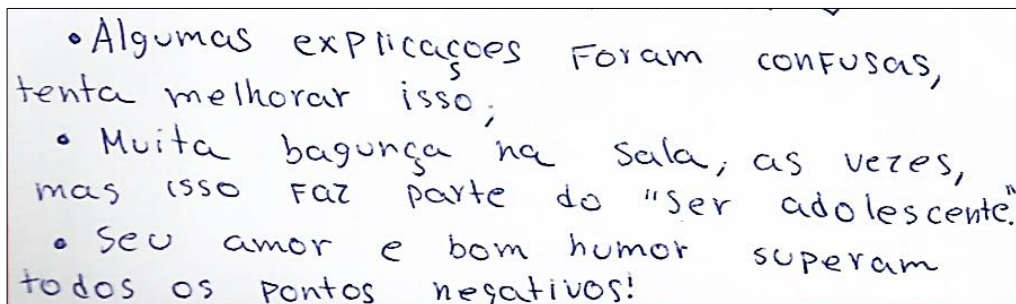 • Algumas explicaçoes Foram confusas,
tenta melhorar isso;
• Muita bagunça na sala, as vezes,
mas isso Faz parte do "ser adolescente."
• Seu amor e bom humor superam
todos os pontos negativos!